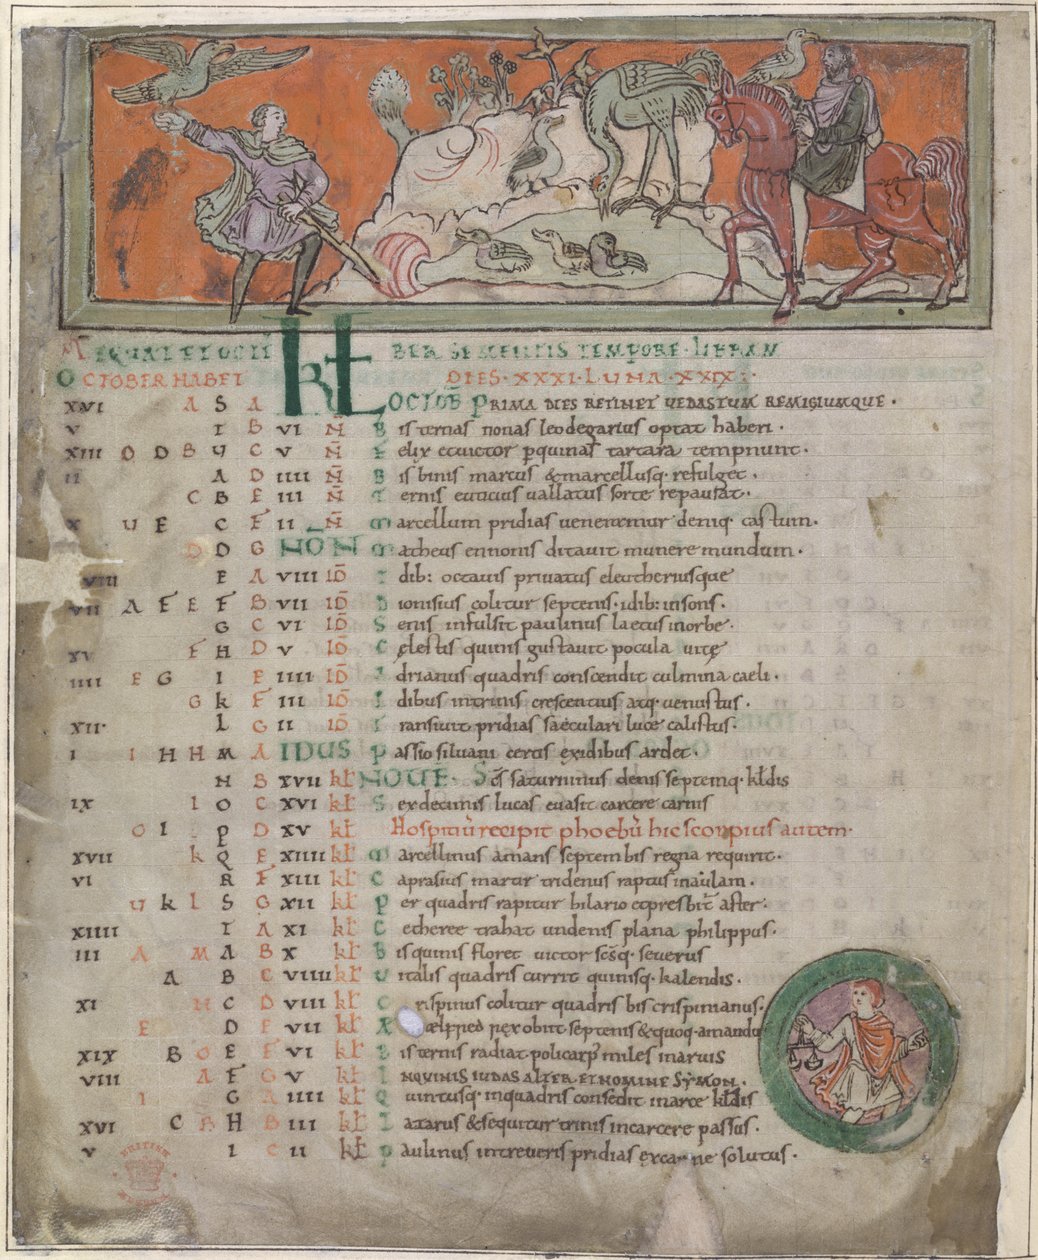 EQUAT ET OCTI KL BER SEMENTIS TEMPORE LIBRAM
OCTOBER HABET DIES · XXXI · LUNA · XXIX ·
XVI A S A OCTOB PRIMA DIES RETINET VEDASTUM REMIGIUMQUE ·
V T B VI N Bis ternas nonas leodegarius optat haberi ·
XIII O D B Y C V N Felix et victor p quinas tartara tempnunt ·
II A D IIII N Bis binis martus & marcellusq · refulget ·
C B E III N Ternis euticius vallatus sorte repausat ·
X U E C F II N Marcellum pridias veneremur deniq · castum ·
D D G NON Matheus ennonis ditavit munere mundum ·
VIII E A VIII ID Idib: octavis privatus eleutheriusque
VII A F E F B VII ID Dionisius colitur septenis · idib: insons ·
G C VI ID Senis infulsit paulinus laetus in orbe ·
XV F H D V ID Cęlestis quinis gustavit pocula vitę
IIII E G I E IIII ID Adrianus quadris conscendit culmina caeli ·
G K F III ID Idibus in trinis crescentius atq · venustus ·
XII · L G II ID Transivit pridias saeculari luce calistus ·
I I H H M A IDUS Passio silvani certis ex idibus ardet ·
N B XVII KL NOVE · Scs saturninus denis septemq · kldis
IX I O C XVI KL Sex decimis lucas evasit carcere carnis
O I P D XV KL Hospitiu recipit phoebu hic scorpius autem ·
XVII K Q E XIIII KL Marcellinus amans septem bis regna requirit ·
VI R F XIII KL Caprasius martir tridenus raptus in aulam ·
U K L S G XII KL Per quadris rapitur hilario et presbit aster ·
XIIII T A XI KL Cetheree trahat undenis plana philippus ·
III A M A B X KL Bis quinis floret victor scsq · severus
A B C VIIII KL Vitalis quadris currit quinisq · kalendis ·
XI N C D VIII KL Crispinus colitur quadris bis crispinianus ·
E D E VII KL Aelfred rex obiit septenis & quoq · amandu
XIX B O E F VI KL Bis ternis radiat policarp miles martis
VIII A F G V KL INQUINIS IUDAS ALTER ET NOMINE SYMON ·
I G A IIII KL Quintusq · in quadris consedit marte kldis
XVI C B H B III KL Lazarus & sequitur trinis in carcere passus ·
V I C II KL Paulinus in treveris pridias ex carne solutus ·